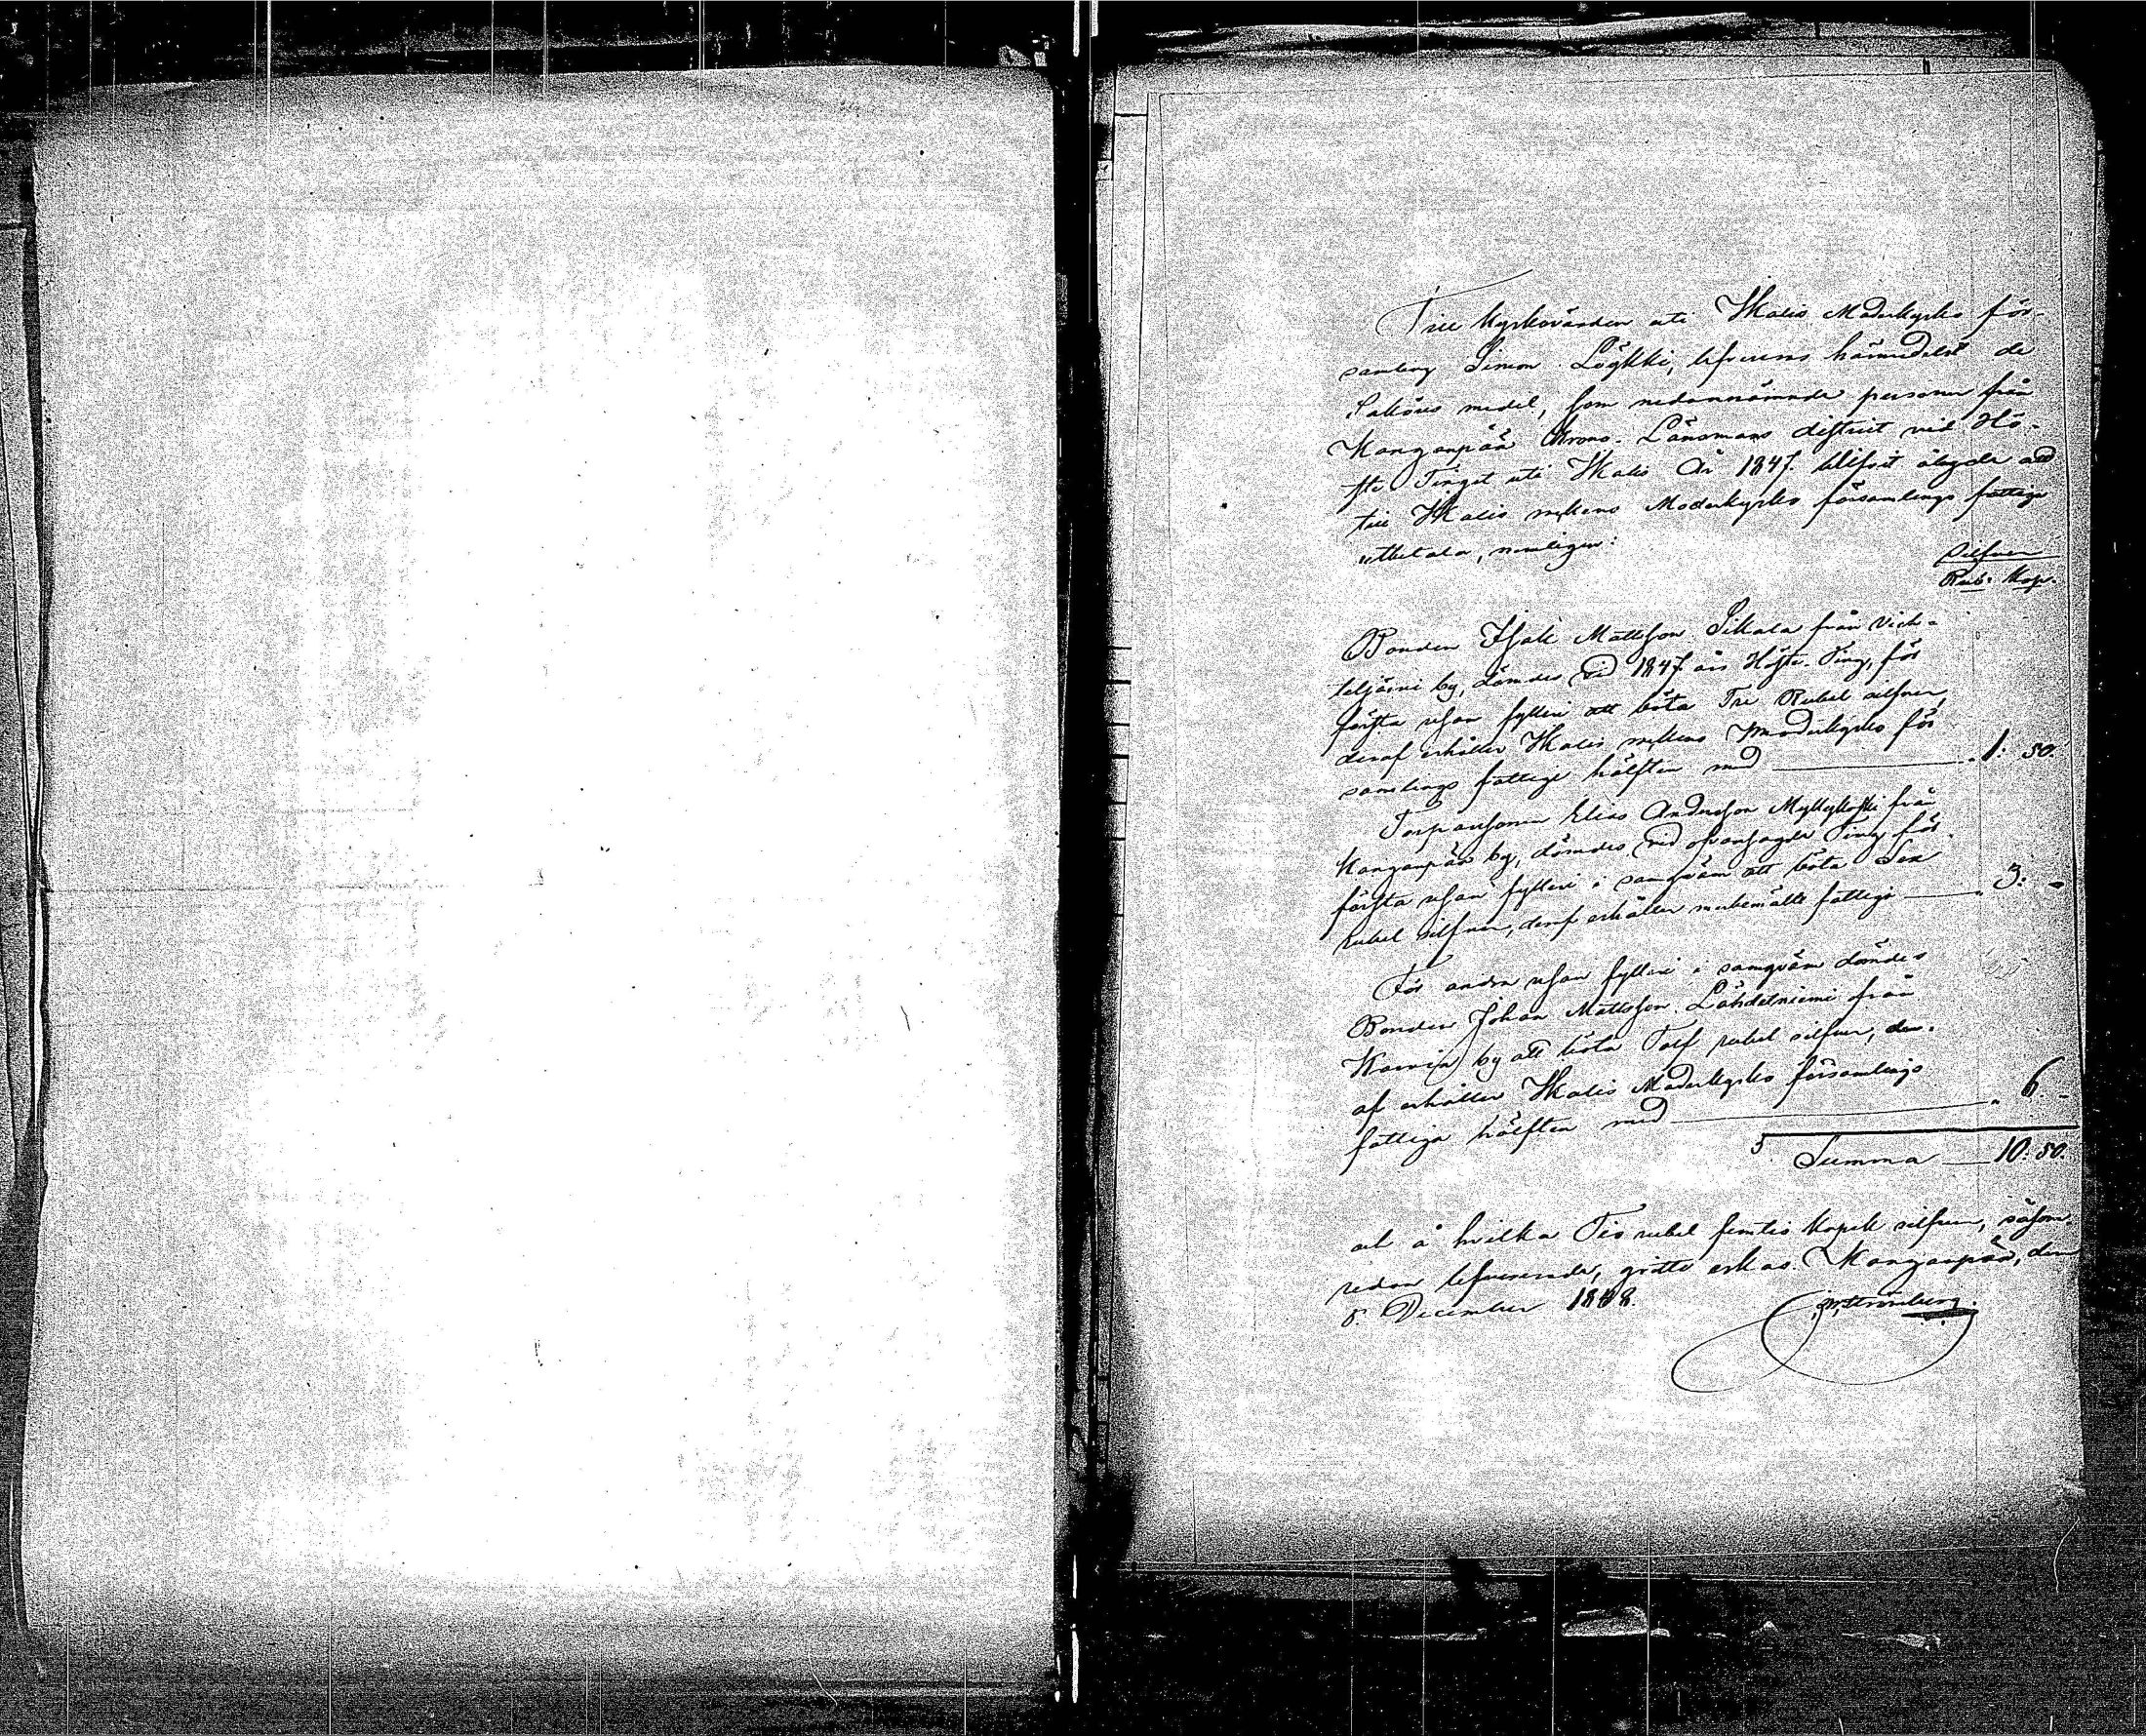 Till Kyrkovärden uti Ikalis Moderkyrko för-
samling Simon Löykki, lefvereras härmedelst de
Sakören medel, som nedannämnde personer från
Kangaspää Krono-Länsmans district vid Hö-
ste Tinget uti Ikalis År 1847. blifvit ålagde att
till Ikalis sockens Moderkyrko församlings fattige
utbetala, nemligen:
Silfver
Rub: Kop.
Bonden Isak Mattsson Sikala från Vich-
teljärvi by, dömdes vid 1847 års Höste-Ting, för
första resan fylleri att böta Tre Rubel silfver,
deraf erhåller Ikalis sockens Moderkyrko för
samlings fattige hälften med 1: 50.
Torparsonen Elias Andersson Myllykoski från
Kangaspää by, dömdes vid ofvansagde Ting för
första resan fylleri i samqväm att böta Sex
rubel silfver, deraf erhåller merbemälte fattige 3: -
För andra resan fylleri i samqväm dömdes
Bonden Johan Mattsson Lähdetniemi från
Karvia by att böta Tolf rubel silfver, der-
af erhåller Ikalis Moderkyrko församlings
fattiga hälften med 6. -
Summa 10. 50.
och å hvilka Tio rubel femtio kopek silfver, såsom
redan lefvererade, qvitto erkas. Kangaspää, den
8. December 1848.
Strömberg.